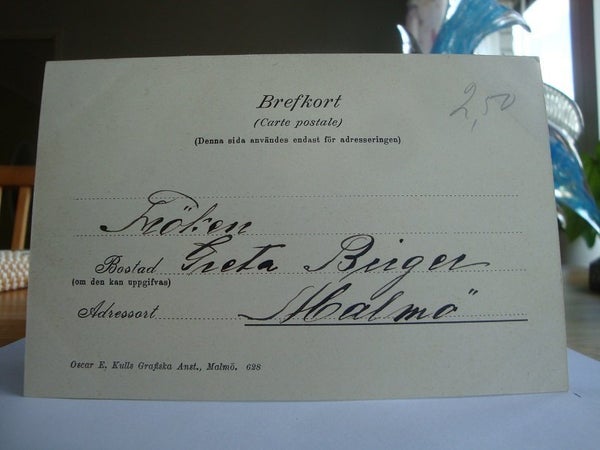 Brefkort
2,50
(Carte postale)
(Denna sida användes endast för adresseringen)
Fröken
Bostad Greta Birger
(om den kan uppgifvas)
Adressort Malmö
Oscar E. Kulls Grafiska Anst., Malmö. 628